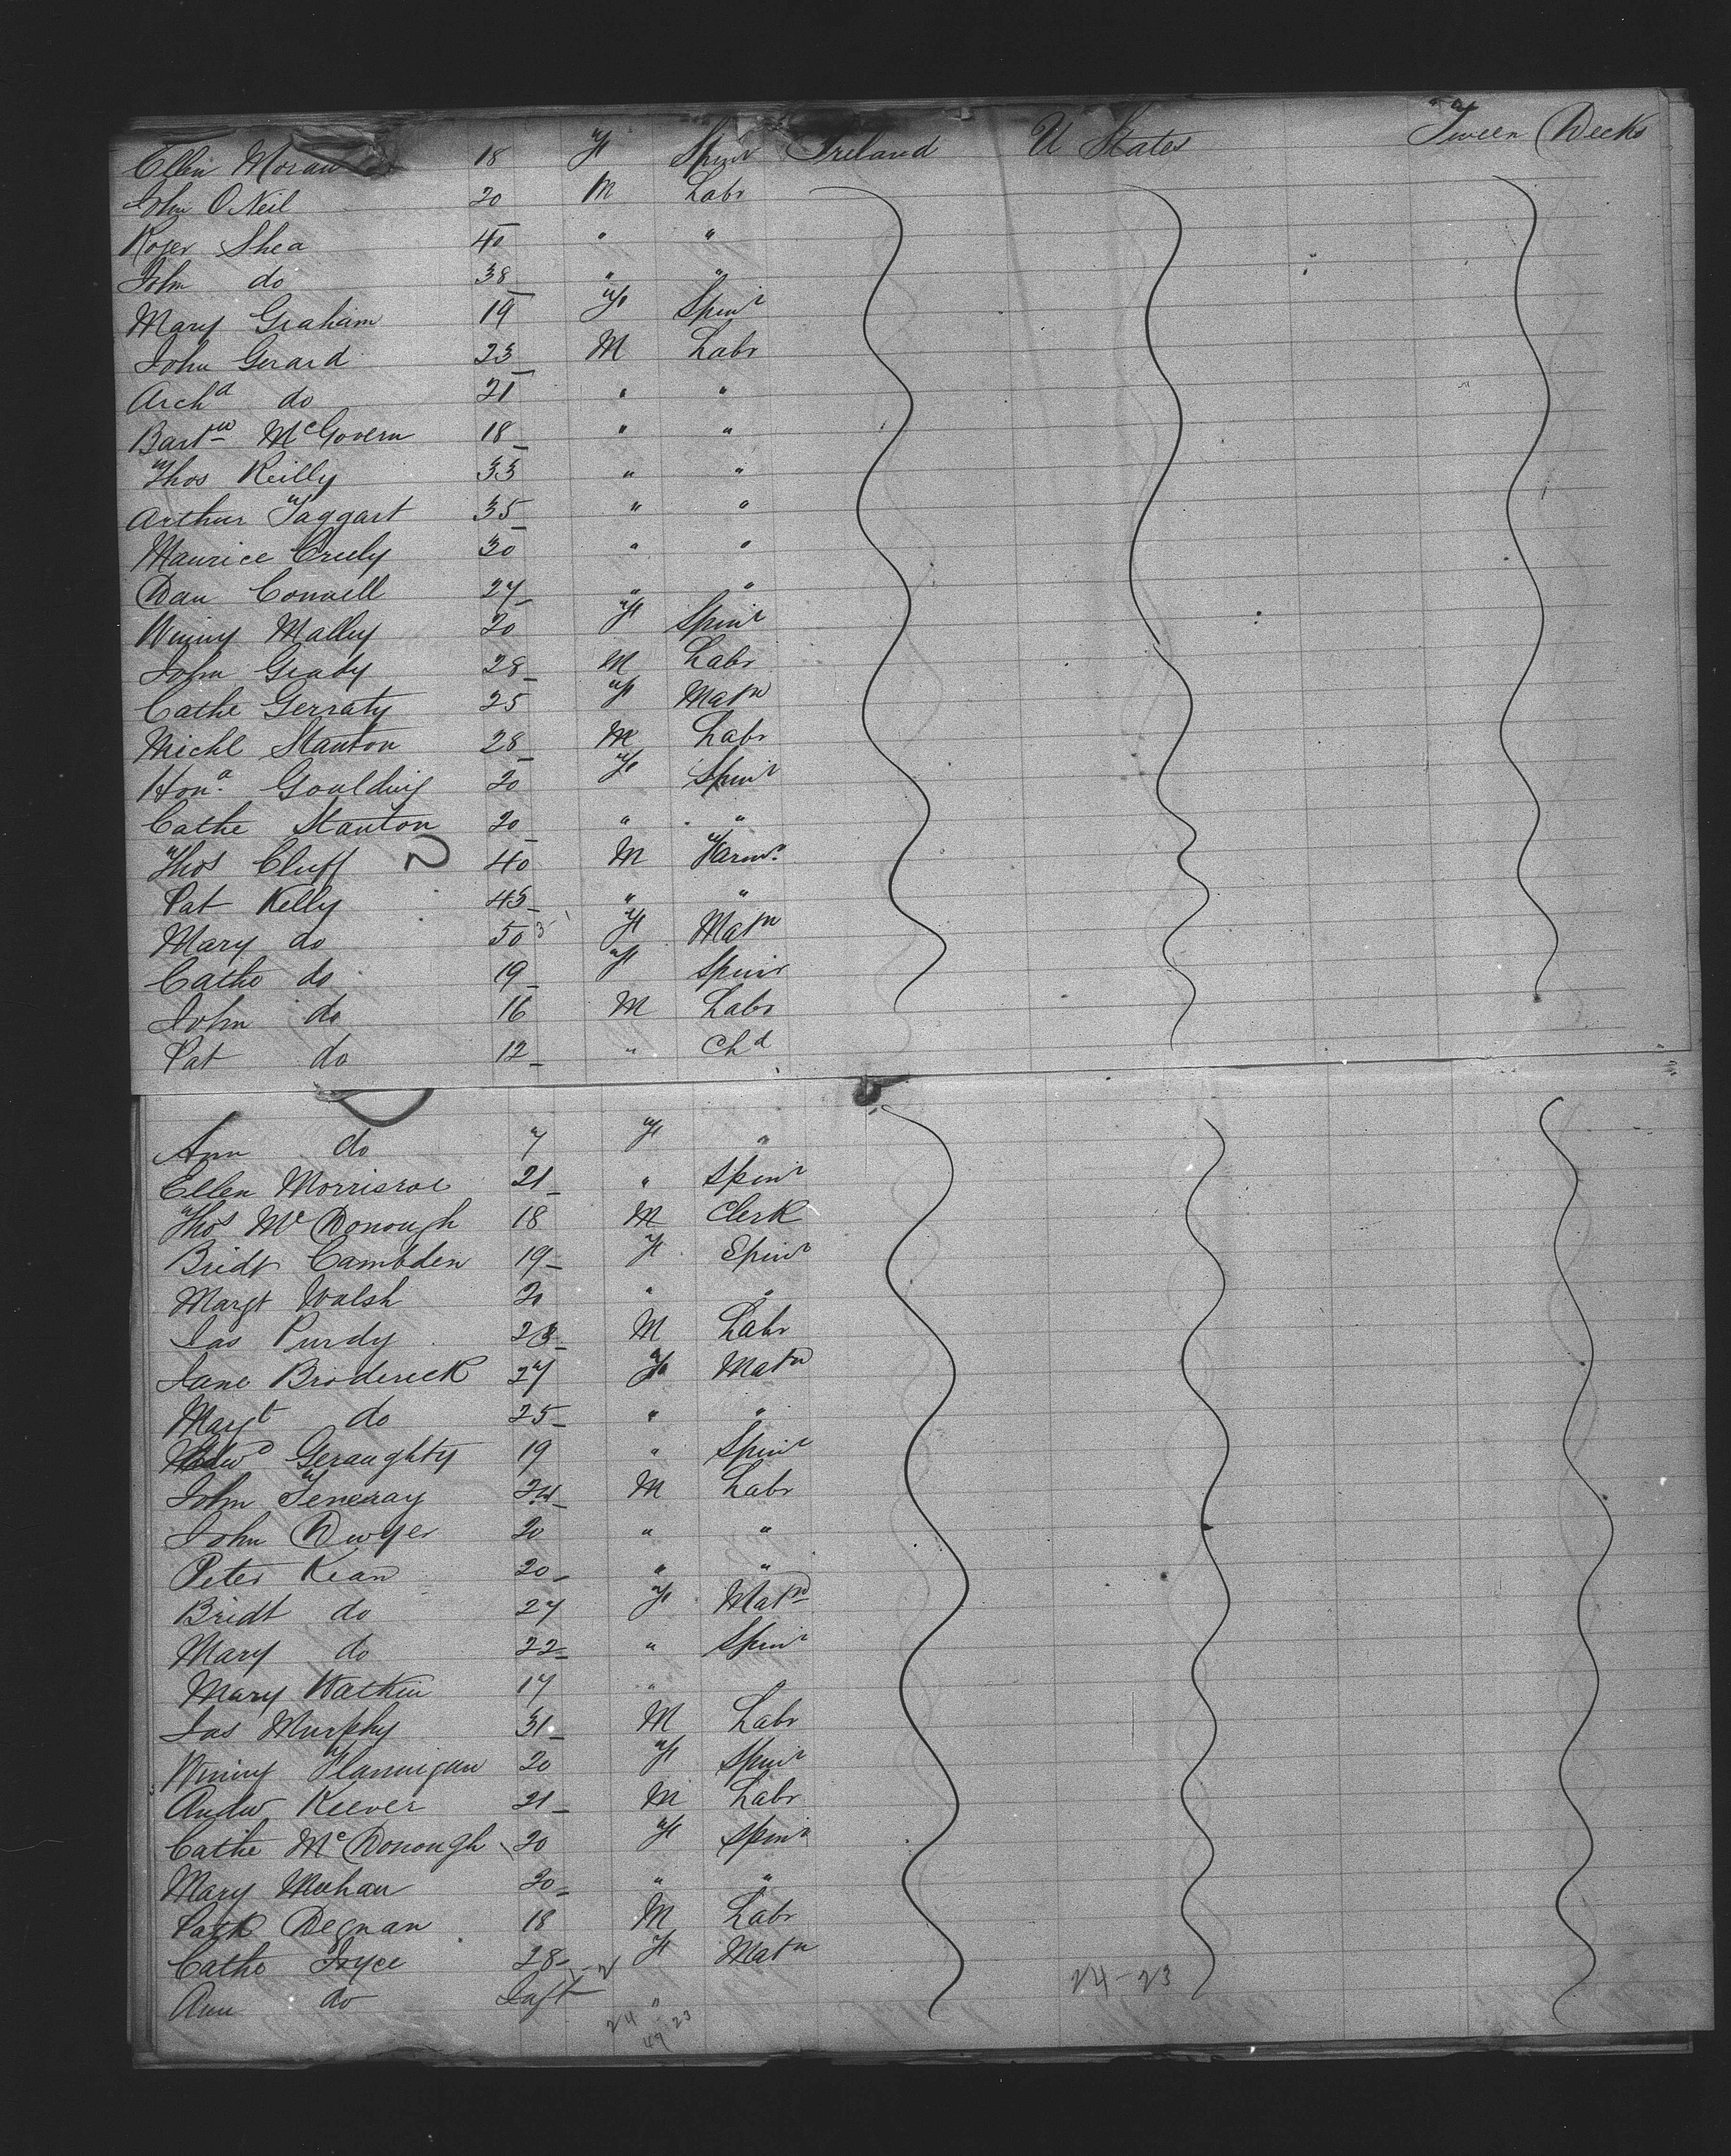 Ellen Moran 18 F Spinr Ireland U States Tween Decks
John O Neil 20 M Labr
Roger Shea 40 " "
John do 38 " "
Mary Graham 19 F Spinr
John Gerard 23 M Labr
Archd do 21 " "
Bartw McGovern 18 " "
Thos Reilly 33 " "
Arthur Taggart 35 " "
Maurice Creely 30 " "
Dan Connell 27 " "
Winny Malley 20 F Spinr
John Grady 28 M Labr
Cathe Gerraty 25 F Matn
Michl Stanton 28 M Labr
Hona Goulding 20 F Spinr
Cathe Stanton 20 " "
Thos Cluff 40 M Farmr
Pat Kelly 45 " "
Mary do 50 F Matn
Cathe do 19 F Spinr
John do 16 M Labr
Pat do 12 " Chd
Ann do 7 F "
Ellen Morrisroe 21 " Spinr
Thos McDonough 18 M Clerk
Bridt Cambden 19 F Spinr
Margt Walsh 20 " "
Jas Purdy 28 M Labr
Jane Broderick 27 F Matn
Margt do 25 " "
Geraughty 19 " Spinr
John Feneray 24 M Labr
John Dwyer 20 " "
Peter Kean 20 " "
Bridt do 27 F Matn
Mary do 22 " Spinr
Mary Watkin 17 " "
Jas Murphy 31 M Labr
Winny Flannigan 20 F Spinr
Andw Keever 21 M Labr
Cathe McDonough 20 F Spinr
Mary Meehan 20 " "
Patk Degnan 18 M Labr
Cathe Joyce 28 F Matn
Ann do Inft "
24-23
24 23
49